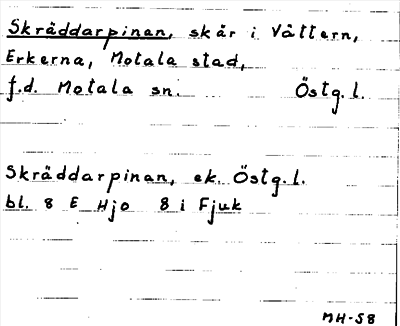 Skräddarpinan, skär i Vättern,
Erkerna, Motala stad,
f.d. Motala sn. Östg.l.
Skräddarpinan, ek. Östg.l.
bl. 8 E Hjo 8 i Fjuk
MH-58